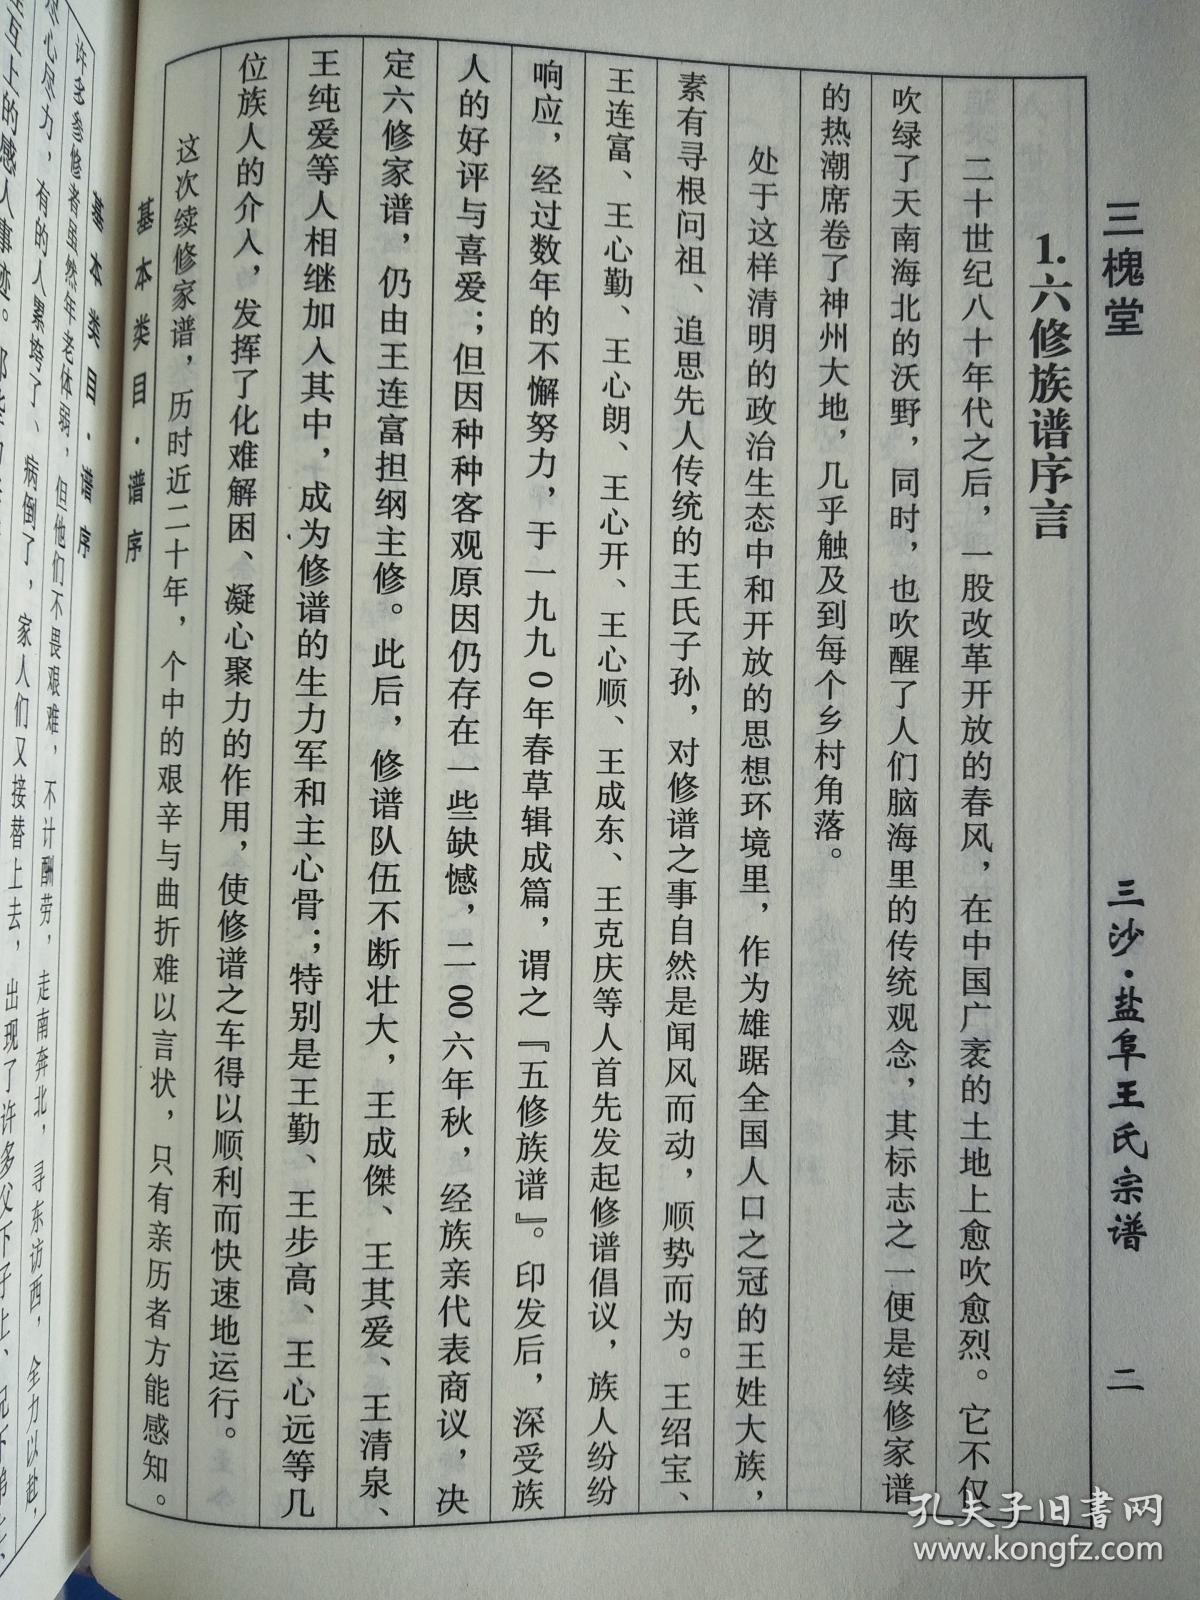 三槐堂
三沙·盐阜王氏宗谱
二
1.六修族谱序言
二十世纪八十年代之后，一股改革开放的春风，在中国广袤的土地上愈吹愈烈。它不仅
吹绿了天南海北的沃野，同时，也吹醒了人们脑海里的传统观念，其标志之一便是续修家谱
的热潮席卷了神州大地，几乎触及到每个乡村角落。
处于这样清明的政治生态中和开放的思想环境里，作为雄踞全国人口之冠的王姓大族，
素有寻根问祖、追思先人传统的王氏子孙，对修谱之事自然是闻风而动，顺势而为。王绍宝、
王连富、王心勤、王心朗、王心开、王心顺、王成东、王克庆等人首先发起修谱倡议，族人纷纷
响应，经过数年的不懈努力，于一九九0年春草辑成篇，谓之『五修族谱』。印发后，深受族
人的好评与喜爱；但因种种客观原因仍存在一些缺憾，二00六年秋，经族亲代表商议，决
定六修家谱，仍由王连富担纲主修。此后，修谱队伍不断壮大，王成傑、王其爱、王清泉、
王纯爱等人相继加入其中，成为修谱的生力军和主心骨；特别是王勤、王步高、王心远等几
位族人的介入，发挥了化难解困、凝心聚力的作用，使修谱之车得以顺利而快速地运行。
这次续修家谱，历时近二十年，个中的艰辛与曲折难以言状，只有亲历者方能感知。
基本类目·谱序
基本类目·谱序
许多参修者虽然年老体弱，但他们不畏艰难，不计酬劳，走南奔北，寻东访西，全力以赴，
尽心尽力，有的人累垮了、病倒了，家人们又接替上去，出现了许多父下子上、兄下弟上、
互上的感人事迹。
孔夫子旧书网
www.kongfz.com